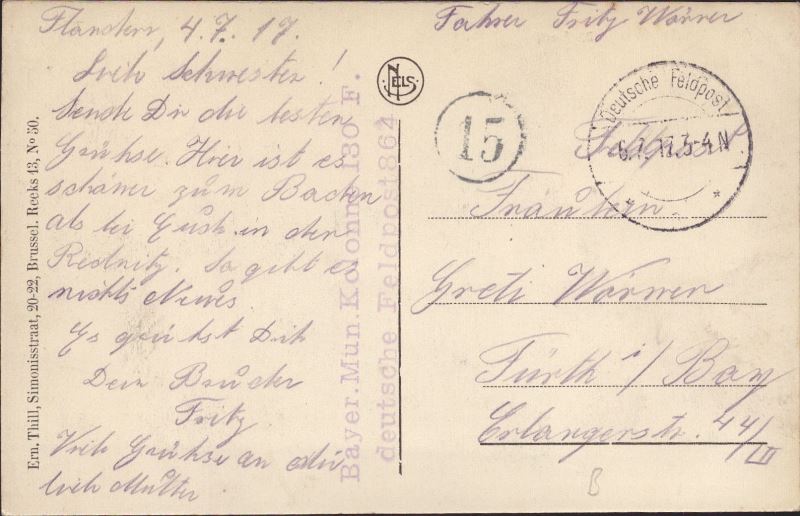 Flandern, 4.7.17.
Lieb Schwester!
Sende Dir die besten
Grühse. Hier ist es
schöner zum Baden
als bei Euch in der
Rednitz. So gibt es
nichts Neues.
Es grühst Dich
Dein Bruder
Fritz
Viele Grühse an
lieb Mutter
Ern. Thill, Simonisstraat, 20-22, Brussel. Reeks 13, No 50.
Bayer.Mun.Kolonne 130 F.
deutsche Feldpost 864
NELS
15
Deutsche Feldpost
6.7.17.3-4N
Fahrer Fritz Wörner
Feldpost
Fräulein
Greti Wörner
Fürth i/Bay
Erlangerstr. 44/III
B